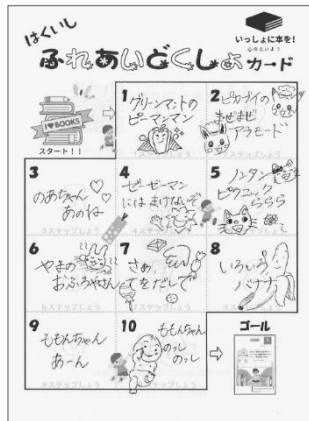 はくいし
いっしょに本を!
心はたいよう
ふれあいどくしょカード
I ♥ BOOKS
スタート!!
1 グリーンマントの
ピーマンマン
2 ピカゴイの
まぜまぜ
アラモード
3 のあちゃん
あのね
4 ゼーゼーマン
にはまけないぞ
5 ノンタン
ピクニック
ららら
6 やまの
おふろやさん
7 さあ、
てをだして
8 いろいろ
バナナ
9 ももんちゃん
あーん
10 ももんちゃん
のっし
のっし
ゴール